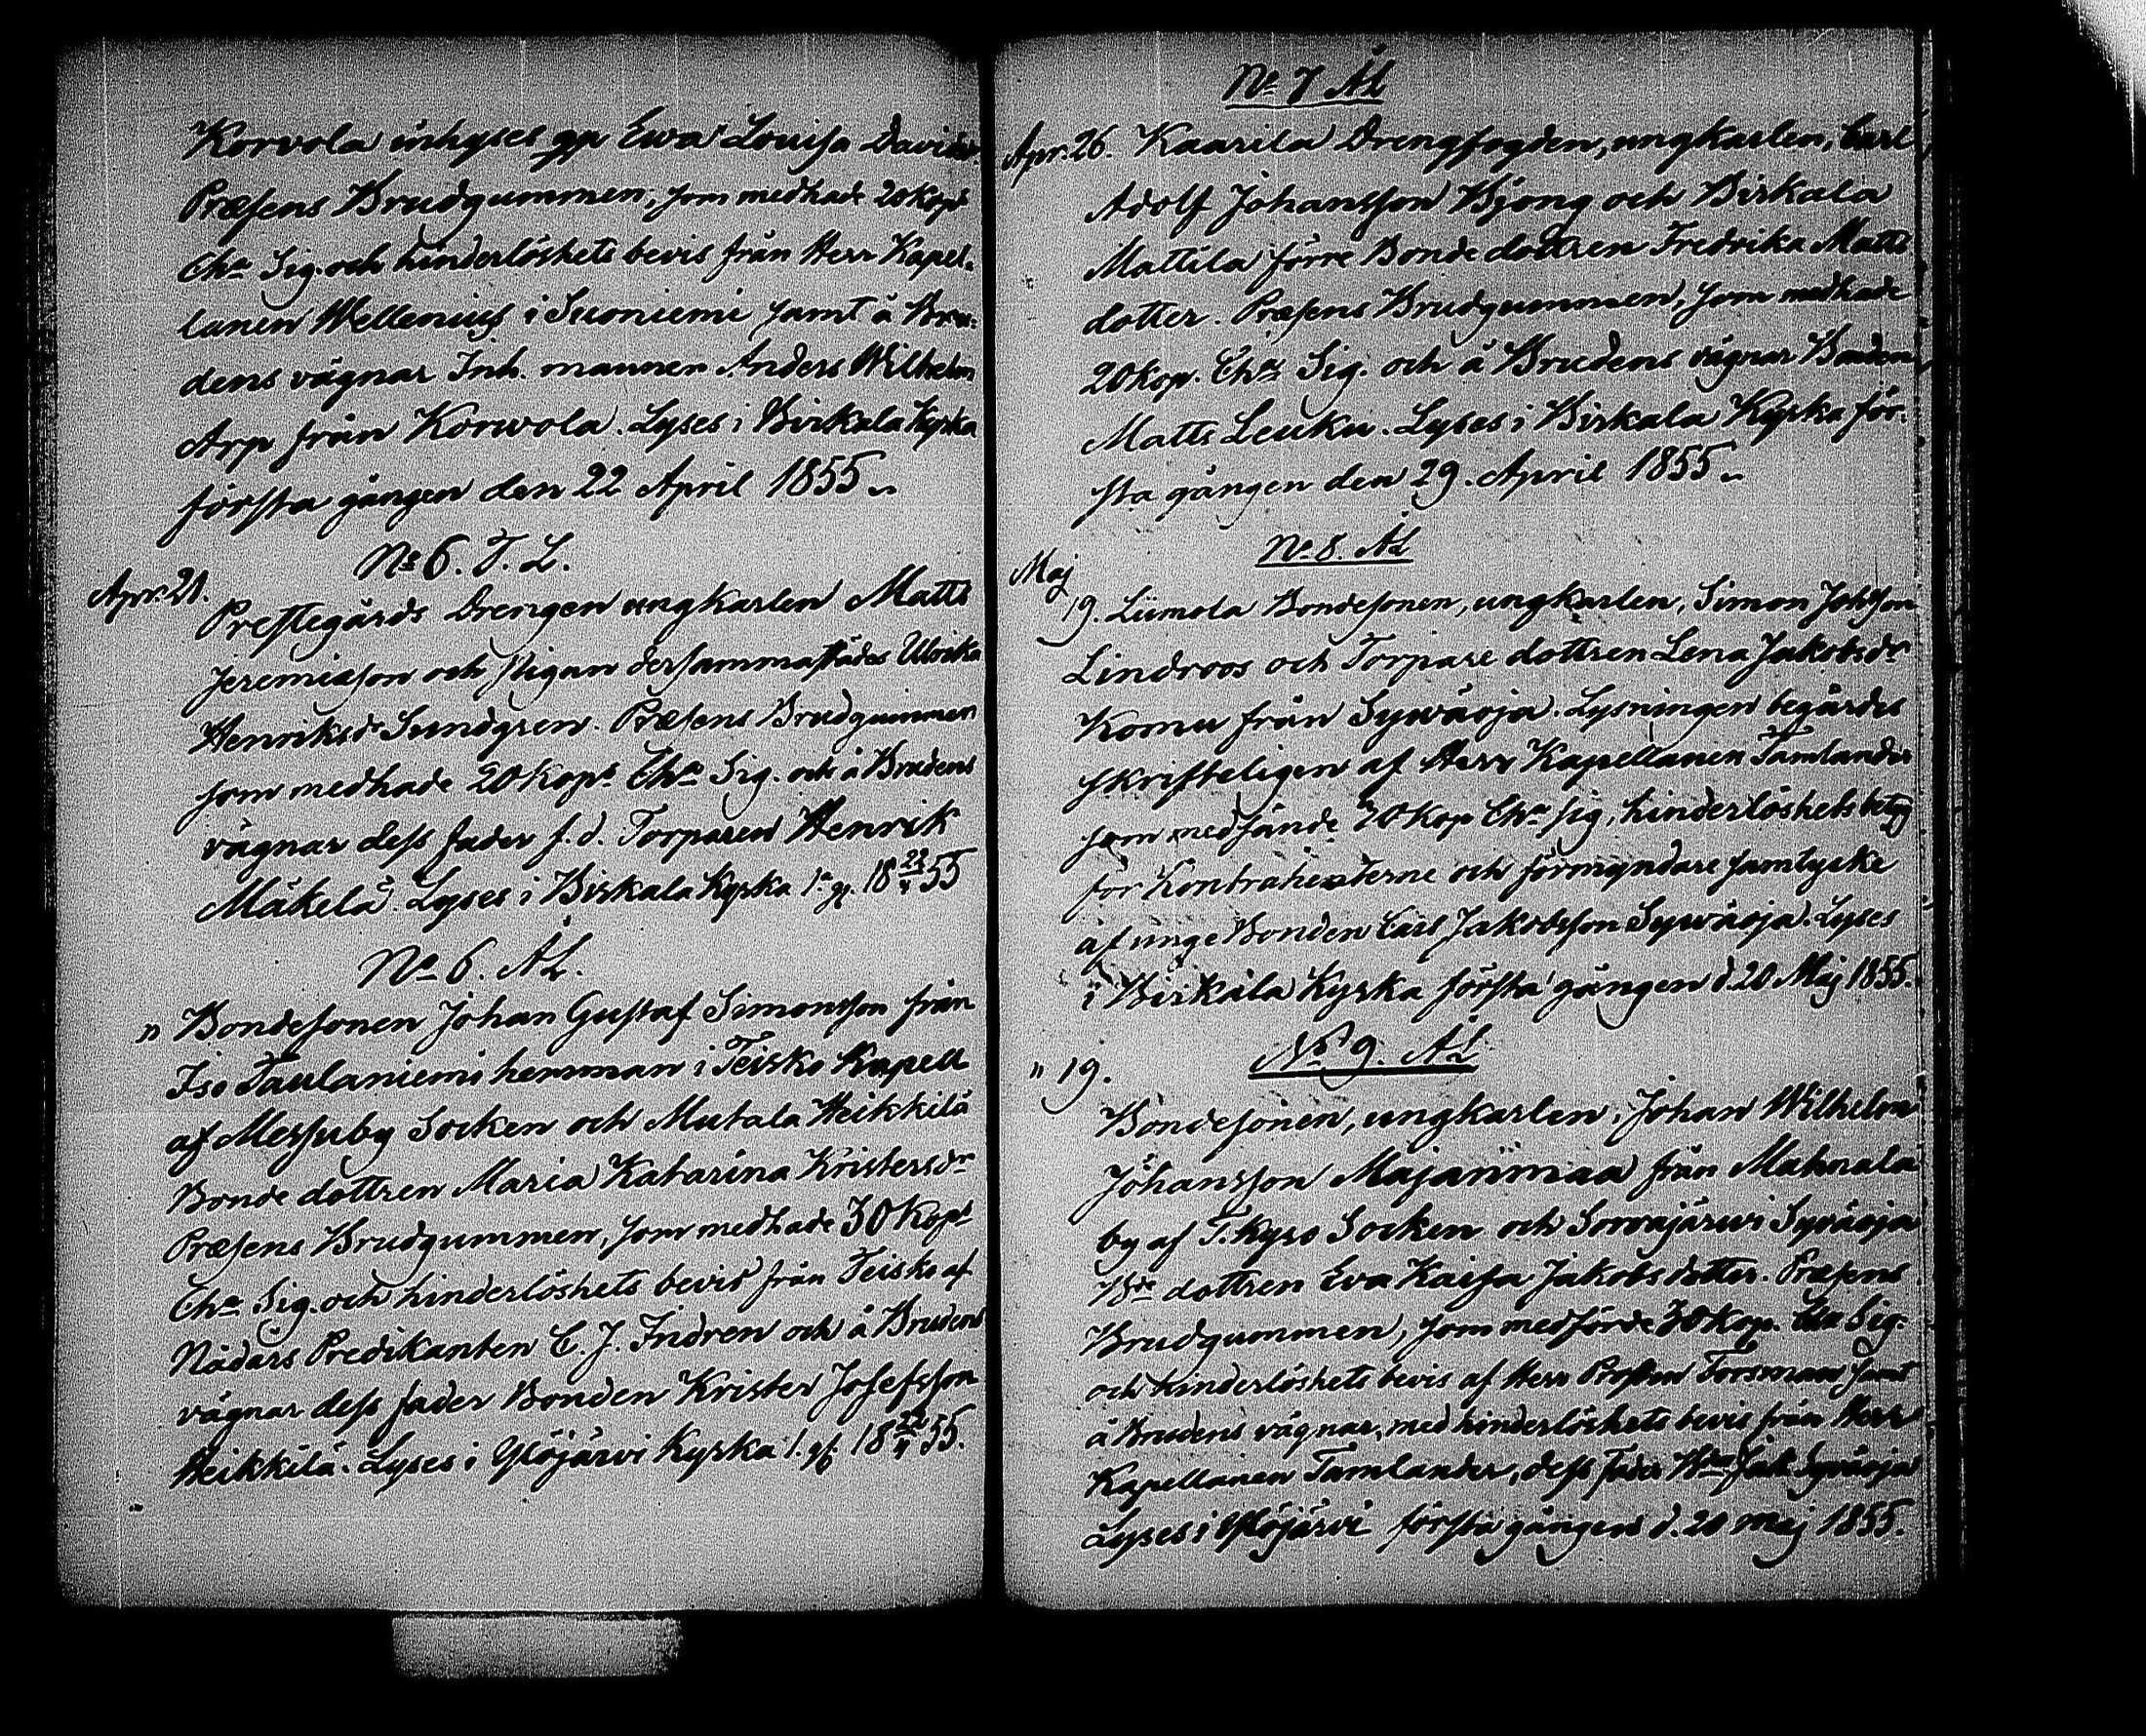 Korvola inhyses gp Ewa Louisa Davidsr.
Præsens Brudgummen, som medhade 20 kops
Cha Sig. och hinderlöshets bevis från Herr Kapel-
lanen Wellenius i Suoniemi samt å Bru-
dens vägnar Inh. mannen Anders Wilhelm
Arp från Korwola. Lyses i Birkala Kyrka
första gången den 22 April 1855.
No 6. T. L.
Apr. 21. Prestegårds Drengen ungkarlen Matts
Jeremiasson och Pigan dersammastädes Ulrika
Henriksdr Sundgren. Præsens Brudgummen
som medhade 20 Kops Cha Sig. och å Brudens
vägnar dess fader f.d. Torparen Henrik
Mäkelä. Lyses i Birkala Kyrka 1a g. 18 22/4 55
No 6. ÄL.
" Bondesonen Johan Gustaf Simonsson från
Iso Taulaniemi hemman i Teisko Kapell
af Messuby Socken och Mutala Heikkilä
Bonde dottren Maria Katarina Kristersdr
Præsens Brudgummen, som medhade 30 Kops
Cha Sig. och hinderlöshets bevis från Teisko af
Nådårs Predikanten C. J. Indren och å Brudens
vägnar dess fader Bonden Krister Josefsson
Heikkilä. Lyses i Ylöjärvi Kyrka 1. g. 18 22/4 55.
No 7 ÄL
Apr. 26. Kaarila Drengfogden, ungkarlen, Carl
Adolf Johansson Bjong och Birkala
Mattila förre Bonde dottren Fredrika Matts
dotter. Præsens Brudgummen, som medhade
20 kop. Cha Sig. och å Brudens vägnar Bonden
Matts Leuku. Lyses i Birkala Kyrka för-
sta gången den 29. April 1855.
No 8. ÄL
Maj
19. Liimola Bondesonen, ungkarlen, Simon Johsson
Lindroos och Torpare dottren Lena Jakobsdr
Komu från Sywäoja. Lysningen begärdes
skrifteligen af Herr Kapellanen Tamlander
som medsände 20 Kop Cha sig, hinderlöshets betyg
för Kontrahenterne och förmyndare samtycke
af unge Bonden Carl Jakobsson Sywäoja. Lyses
i Birkala Kyrka första gången d. 20 Maj 1855.
No 9. ÄL
" 19.
Bondesonen, ungkarlen, Johan Wilhelm
Johansson Majanmaa från Mahnala
by af T.kyro Socken och Sorvajärvi Sywäoja
Bde dottren Eva Kaisa Jakobsdotter. Præsens
Brudgummen, som medförde 30 kop. Cha Sig.
och hinderlöshets bevis af Herr Prosten Forsman samt
å Brudens vägnar, med hinderlöshets bevis från Herr
Kapellanen Tamlander, dess fader Jak Sywäoja
Lyses i Ylöjärvi första gången d. 20 maj 1855.